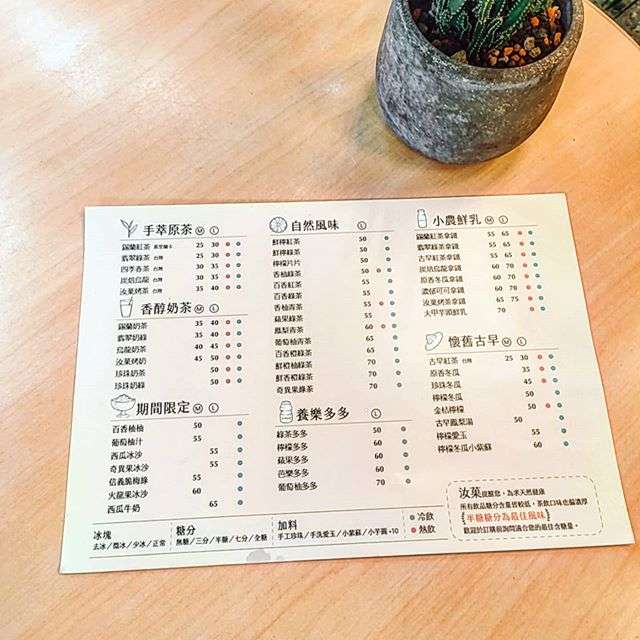 手萃原茶 M L
錫蘭紅茶 斯里蘭卡 25 30
翡翠綠茶 台灣 25 30
四季春茶 台灣 30 35
炭焙烏龍 台灣 30 35
汝菓烤茶 台灣 35 40
香醇奶茶 M L
錫蘭奶茶 35 40
翡翠奶綠 35 40
烏龍奶茶 40 45
汝菓烤奶 45 50
珍珠奶茶 50
珍珠奶綠 50
期間限定 M L
百香柚柚 50
葡萄柚汁 55
西瓜冰沙 55
奇異果冰沙 55
信義脆梅綠 55
火龍果冰沙 60
西瓜牛奶 65
自然風味 L
鮮檸紅茶 50
鮮檸綠茶 50
檸檬片片 50
香柚綠茶 50
百香紅茶 50
百香綠茶 50
香柚青茶 55
蘋果綠茶 60
鳳梨青茶 60
葡萄柚青茶 60
百香橙綠茶 60
鮮橙柚綠茶 70
鮮香橙綠茶 70
奇異果綠茶 70
養樂多多 L
綠茶多多 50
檸檬多多 60
蘋果多多 60
芭樂多多 60
葡萄柚多多 70
小農鮮乳 M L
錫蘭紅茶拿鐵 55 65
翡翠綠茶拿鐵 55 65
古早紅茶拿鐵 55 65
炭焙烏龍拿鐵 60 70
原香冬瓜拿鐵 60 70
濃郁可可拿鐵 60 70
汝菓烤茶拿鐵 65 75
大甲芋頭鮮乳 70
懷舊古早 M L
古早紅茶 台灣 25 30
原香冬瓜 35
珍珠冬瓜 45
檸檬冬瓜 50
金桔檸檬 50
古早鳳梨湯 50
檸檬愛玉 55
檸檬冬瓜小紫蘇 60
冰塊
去冰/微冰/少冰/正常
糖分
無糖/三分/半糖/七分/全糖
加料
手工珍珠/手洗愛玉/小紫蘇/小芋圓+10
冷飲
熱飲
汝菓提醒您,為求天然健康
所有飲品糖分含量皆較低,茶飲口味也偏濃厚
半糖糖分為最佳風味
歡迎於訂購前詢問適合您的最佳含糖量。